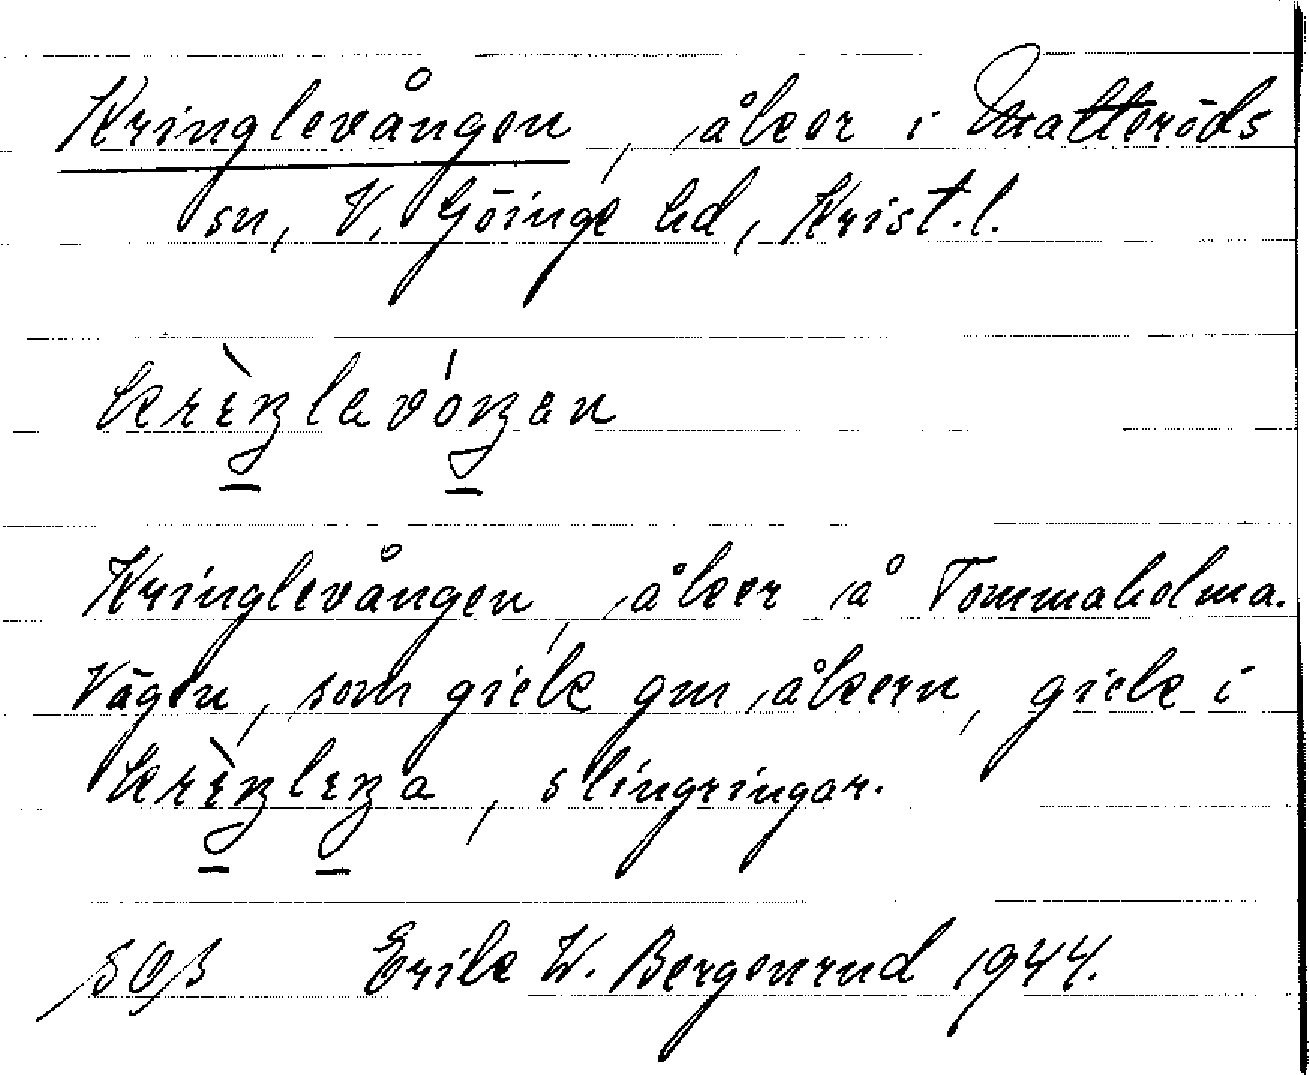 Kringlevången, åker i Matteröds
sn, V. Göinge hd, Krist. l.
krìŋlavóŋan
Kringlevången, åker å Tommaholma.
Vägen, som gick gm åkern, gick i
krìŋlɪŋa, slingringar.
Erik W. Bergenrud 1944.